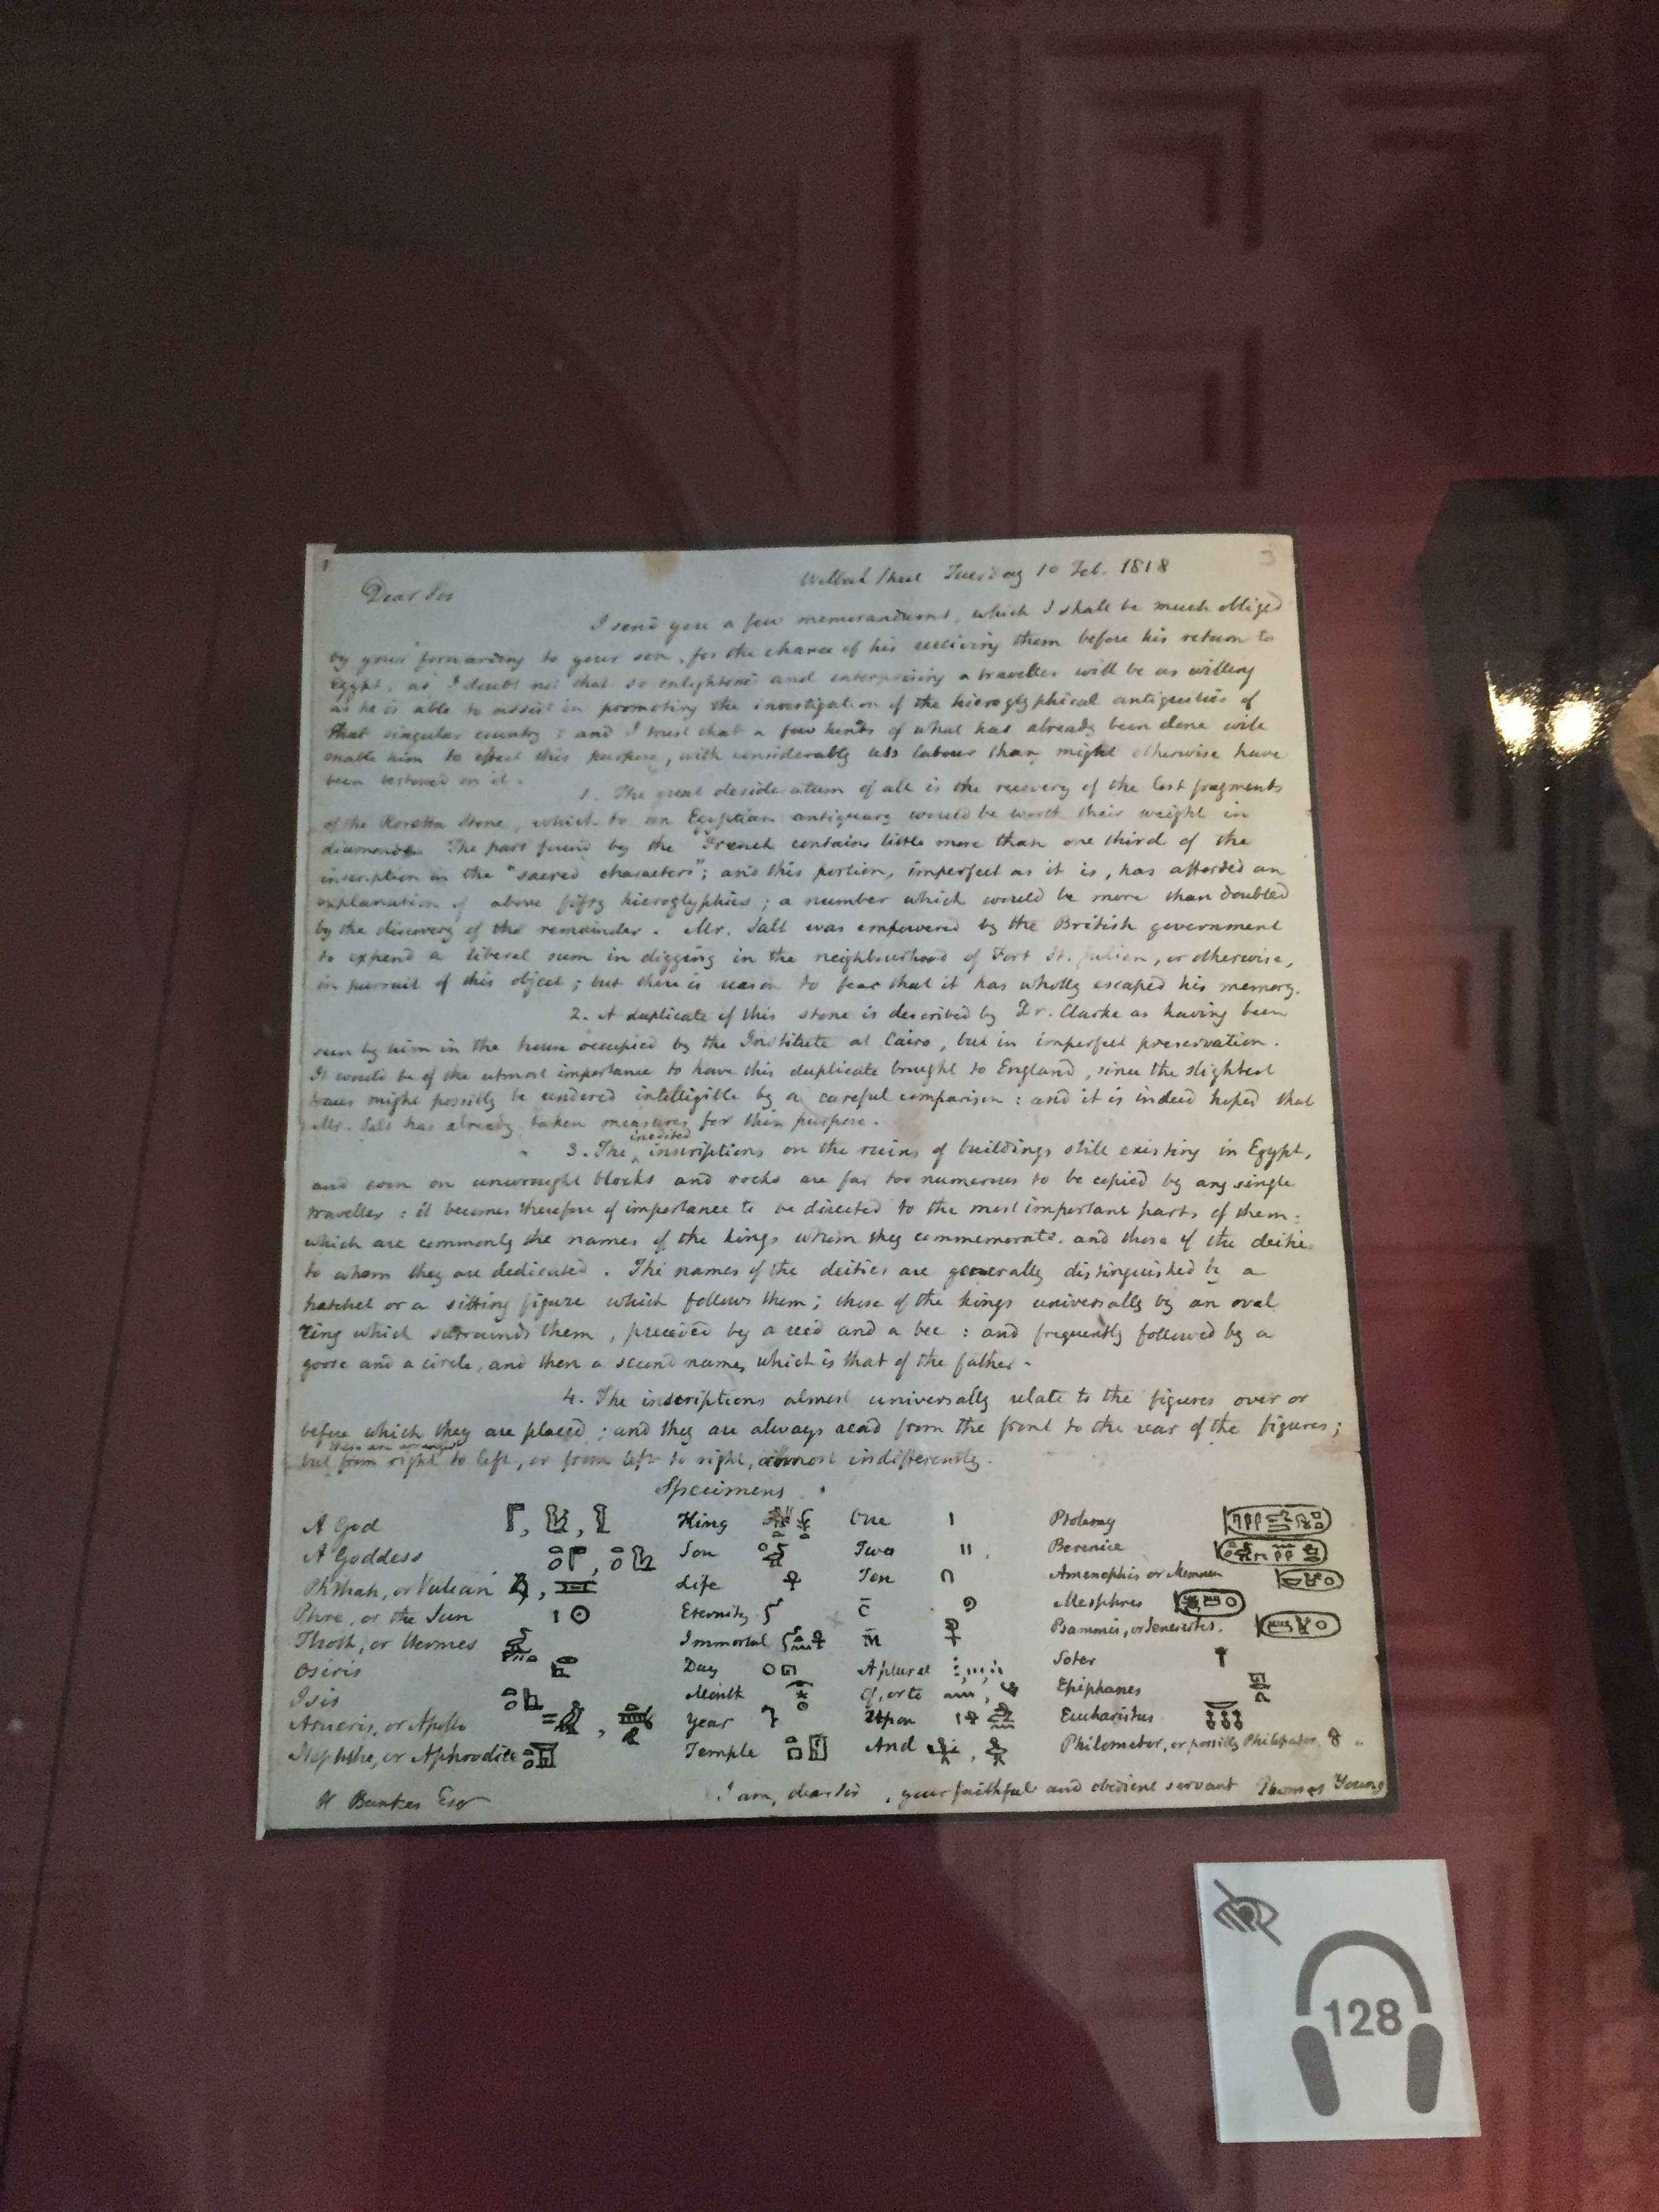 1
3
Welbeck Street Tuesday 10 Feb. 1818
Dear Sir
I send you a few memorandums, which I shall be much obliged
by your forwarding to your son, for the chance of his receiving them before his return to
Egypt, as I doubt not that so enlightened and enterprising a traveller will be as willing
as he is able to assist in promoting the investigation of the hieroglyphical antiquities of
that singular country : and I trust that a few hints of what has already been done will
enable him to effect this purpose, with considerably less labour than might otherwise have
been bestowed on it.
1. The great desideratum of all is the recovery of the lost fragments
of the Rosetta Stone, which to an Egyptian antiquary would be worth their weight in
diamonds. The part found by the French contains little more than one third of the
inscription in the "sacred characters"; and this portion, imperfect as it is, has afforded an
explanation of above fifty hieroglyphics; a number which would be more than doubled
by the discovery of the remainder. Mr. Salt was empowered by the British government
to expend a liberal sum in digging in the neighbourhood of Fort St. Julien, or otherwise,
in pursuit of this object; but there is reason to fear that it has wholly escaped his memory.
2. A duplicate of this stone is described by Dr. Clarke as having been
seen by him in the house occupied by the Institute at Cairo, but in imperfect preservation.
It would be of the utmost importance to have this duplicate brought to England, since the slightest
traces might possibly be rendered intelligible by a careful comparison : and it is indeed hoped that
Mr. Salt has already taken measures for this purpose.
3. The inedited inscriptions on the ruins of buildings still existing in Egypt,
and even on unwrought blocks and rocks are far too numerous to be copied by any single
traveller : it becomes therefore of importance to be directed to the most important parts of them:
which are commonly the names of the kings whom they commemorate, and those of the deities
to whom they are dedicated. The names of the deities are generally distinguished by a
hatchet or a sitting figure which follows them; those of the kings universally by an oval
ring which surrounds them, preceded by a reed and a bee : and frequently followed by a
goose and a circle, and then a second name, which is that of the father.
4. The inscriptions almost universally relate to the figures over or
before which they are placed ; and they are always read from the front to the rear of the figures;
but these are arranged from right to left, or from left to right, almost indifferently.
Specimens.
A God King One Ptolemy
A Goddess Son Two Berenice
Phthah, or Vulcan Life Ten Amenophis or Memnon
Phre, or the Sun Eternity C̄ Mesphres
Thoth, or Hermes Immortal M̄ Bammis, or
Osiris Day A plural Soter
Isis Month Of, or to Epiphanes
Arueris, or Apollo Year Upon Eucharistus
Nephthe, or Aphrodite Temple And Philometor, or possibly Philopator
I am, dear Sir, your faithful and obedient servant Thomas Young
H Bankes Esqr
128